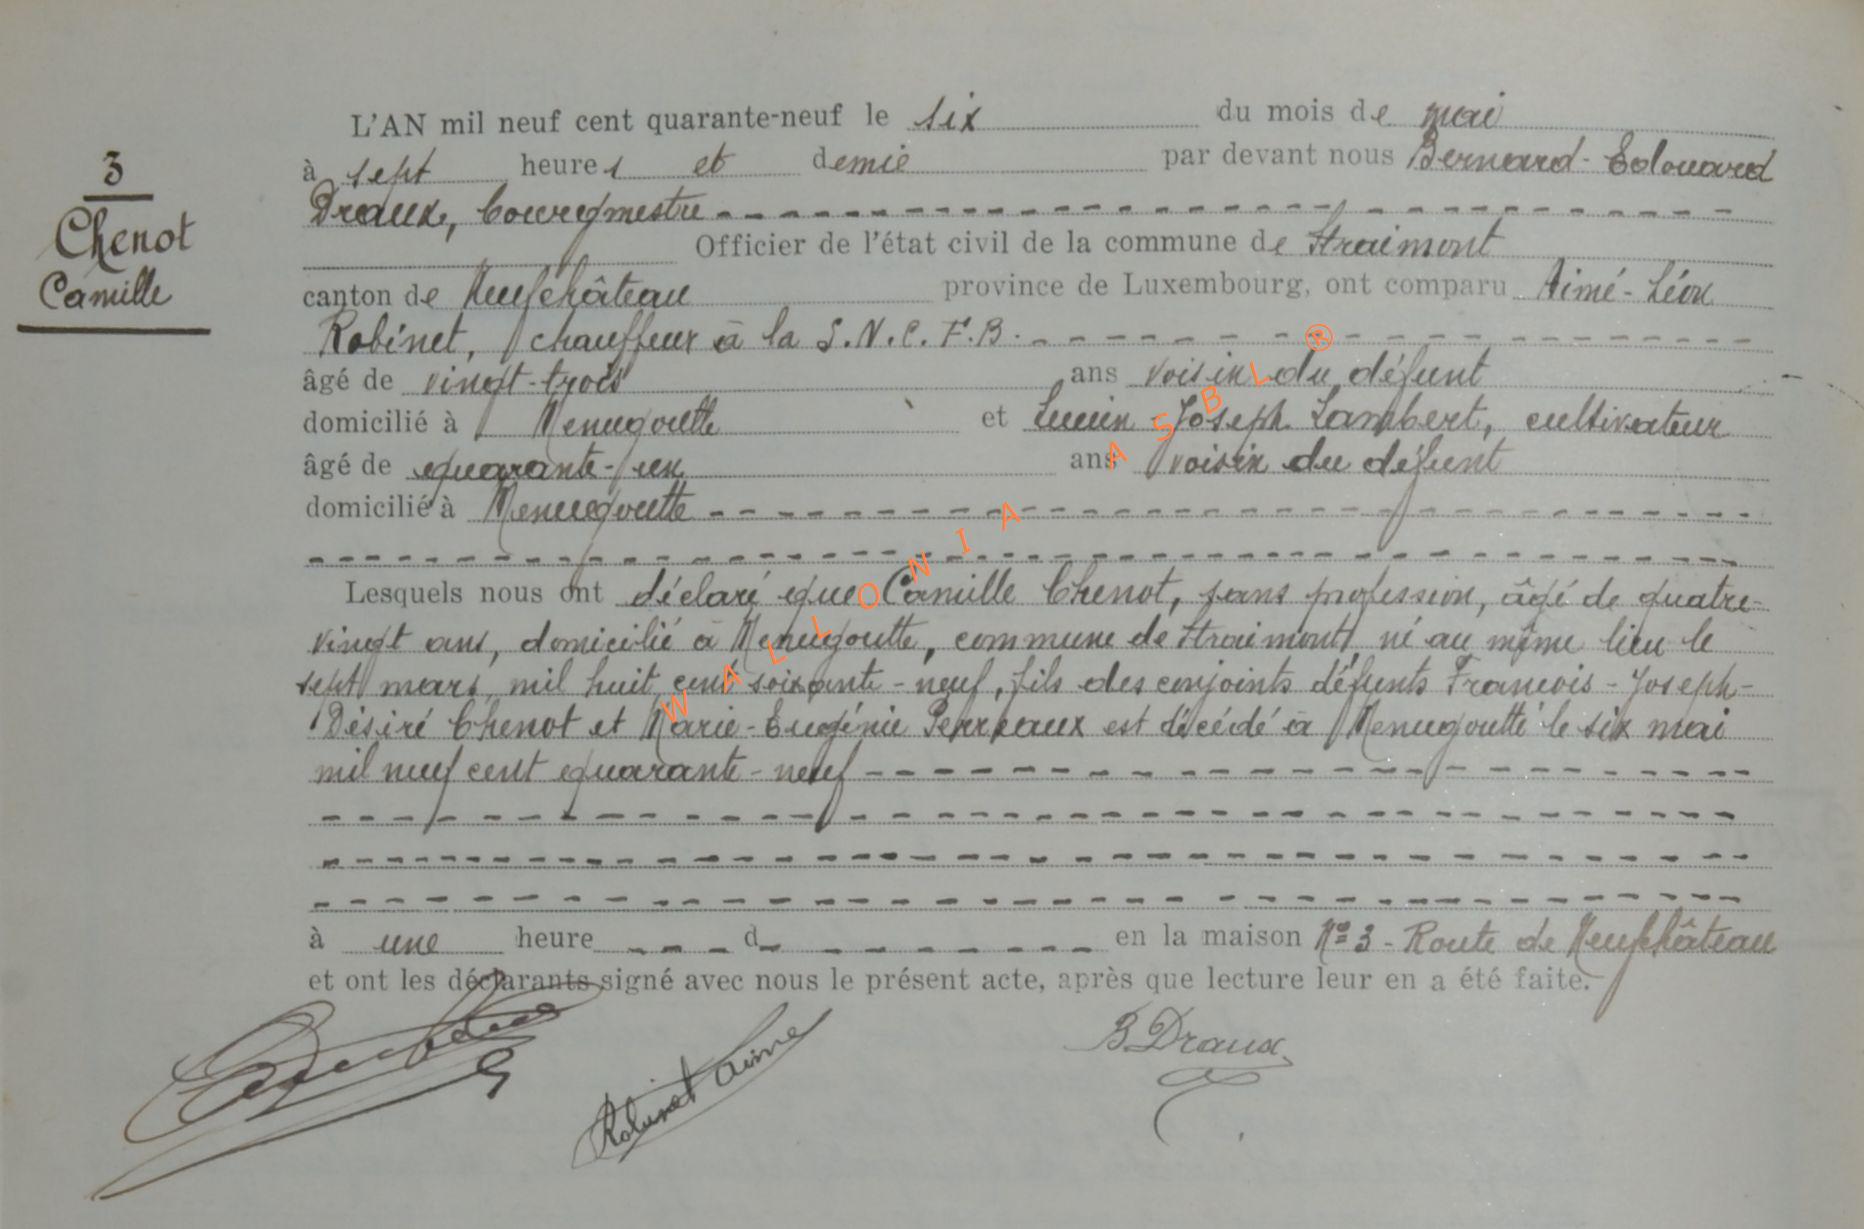 3
Chenot
Camille
L'AN mil neuf cent quarante-neuf le six du mois de mai
à sept heures et demie par devant nous Bernard-Edouard
Draux, bourgmestre
Officier de l'état civil de la commune de Straimont
canton de Neufchâteau province de Luxembourg, ont comparu Aimé-Léon
Robinet, chauffeur à la S.N.C.F.B.
âgé de vingt-trois ans voisin du défunt
domicilié à Menugoutte et Lucien Joseph Lambert, cultivateur
âgé de quarante-un ans voisin du défunt
domicilié à Menugoutte
Lesquels nous ont déclaré que Camille Chenot, sans profession, âgé de quatre-
vingt ans, domicilié à Menugoutte, commune de Straimont, né au même lieu le
sept mars mil huit cent soixante-neuf, fils des conjoints défunts Francois-Joseph-
Désiré Chenot et Marie-Eugénie Perreaux est décédé à Menugoutte le six mai
mil neuf cent quarante-neuf
à une heure d en la maison N° 3 - Route de Neufchâteau
et ont les déclarants signé avec nous le présent acte, après que lecture leur en a été faite.
Robinet Aimé
B. Draux
WALLONIA ASBL ®